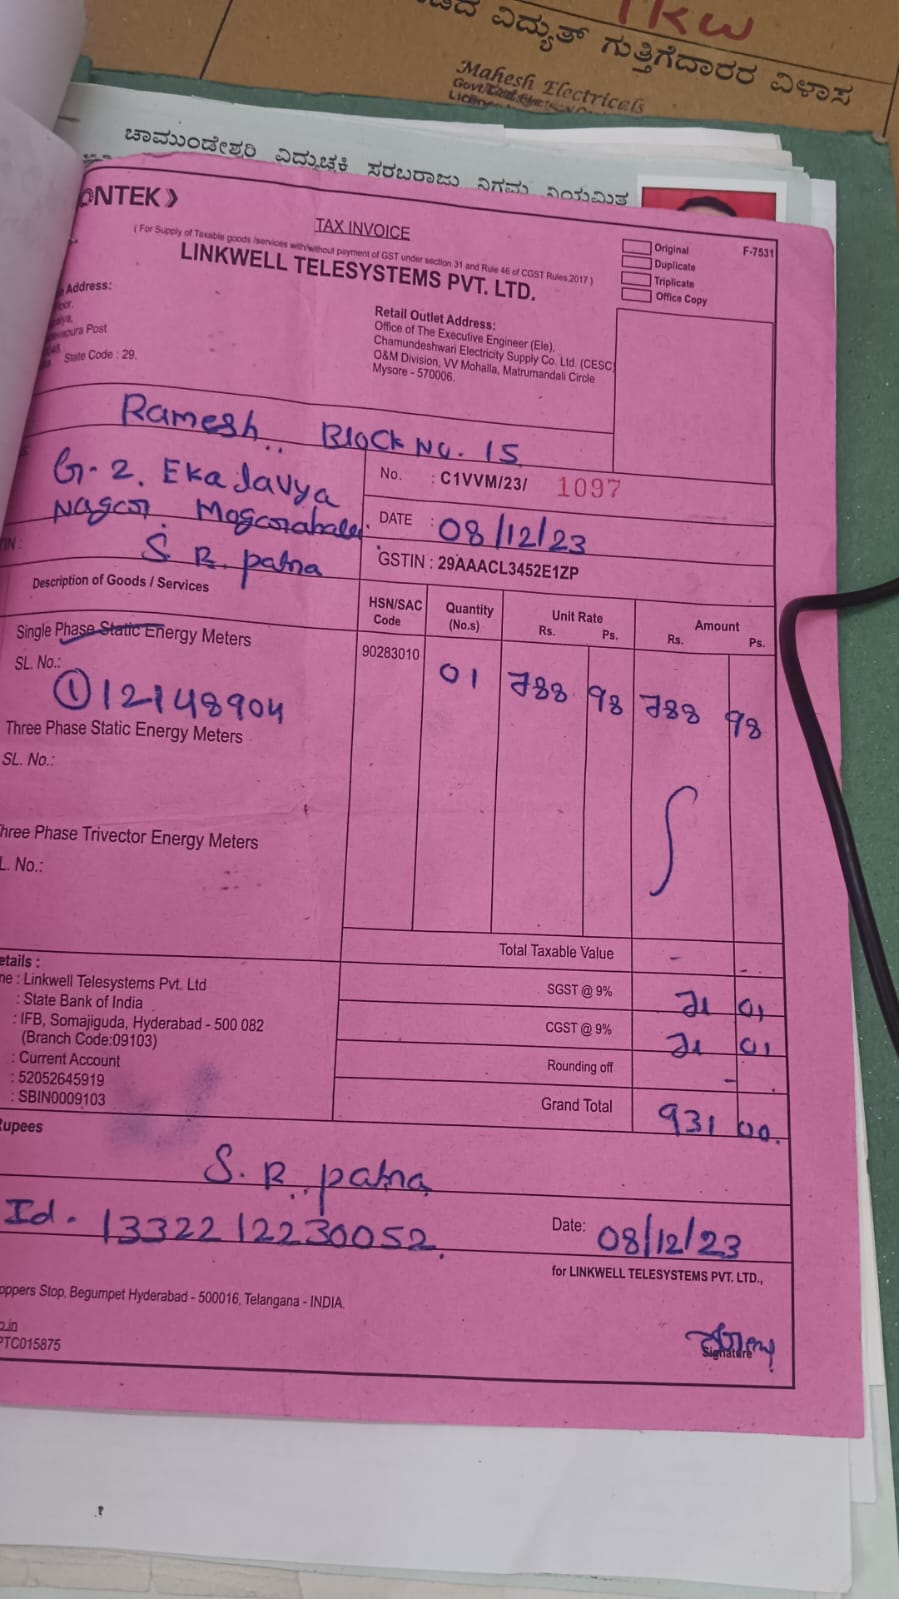 TKW
ವಿದ್ಯುತ್ ಗುತ್ತಿಗೆದಾರರ ವಿಳಾಸ
Mahesh Electricals
ಚಾಮುಂಡೇಶ್ವರಿ ವಿದ್ಯುಚ್ಛಕ್ತಿ ಸರಬರಾಜು ನಿಗಮ ನಿಯಮಿತ
ONTEK
TAX INVOICE
( For Supply of Taxable goods /services with/without payment of GST under section 31 and Rule 46 of CGST Rules,2017 )
LINKWELL TELESYSTEMS PVT. LTD.
Original
F-7531
Duplicate
Triplicate
Office Copy
Address:
Post
State Code : 29.
Retail Outlet Address:
Office of The Executive Engineer (Ele),
Chamundeshwari Electricity Supply Co. Ltd. (CESC)
O&M Division, VV Mohalla, Matrumandali Circle
Mysore - 570006.
Ramesh.. Block No. 15
G-2. Ekalavya
Nagar.
S R. patna
No. : C1VVM/23/ 1097
DATE : 08/12/23
GSTIN : 29AAACL3452E1ZP
Description of Goods / Services
HSN/SAC Code
Quantity (No.s)
Unit Rate
Rs. Ps.
Amount
Rs. Ps.
Single Phase Static Energy Meters
90283010
01
788 98
788 98
SL. No.:
① 12148904
Three Phase Static Energy Meters
SL. No.:
Three Phase Trivector Energy Meters
L. No.:
Total Taxable Value - -
SGST @ 9% 71 01
CGST @ 9% 71 01
Rounding off -
Grand Total 931 00.
etails :
ne : Linkwell Telesystems Pvt. Ltd
: State Bank of India
: IFB, Somajiguda, Hyderabad - 500 082
(Branch Code:09103)
: Current Account
: 52052645919
: SBIN0009103
Rupees
S. R.. patna
Id. 13322 12230052.
Date: 08/12/23
for LINKWELL TELESYSTEMS PVT. LTD.,
oppers Stop, Begumpet Hyderabad - 500016, Telangana - INDIA.
PTC015875
Signature